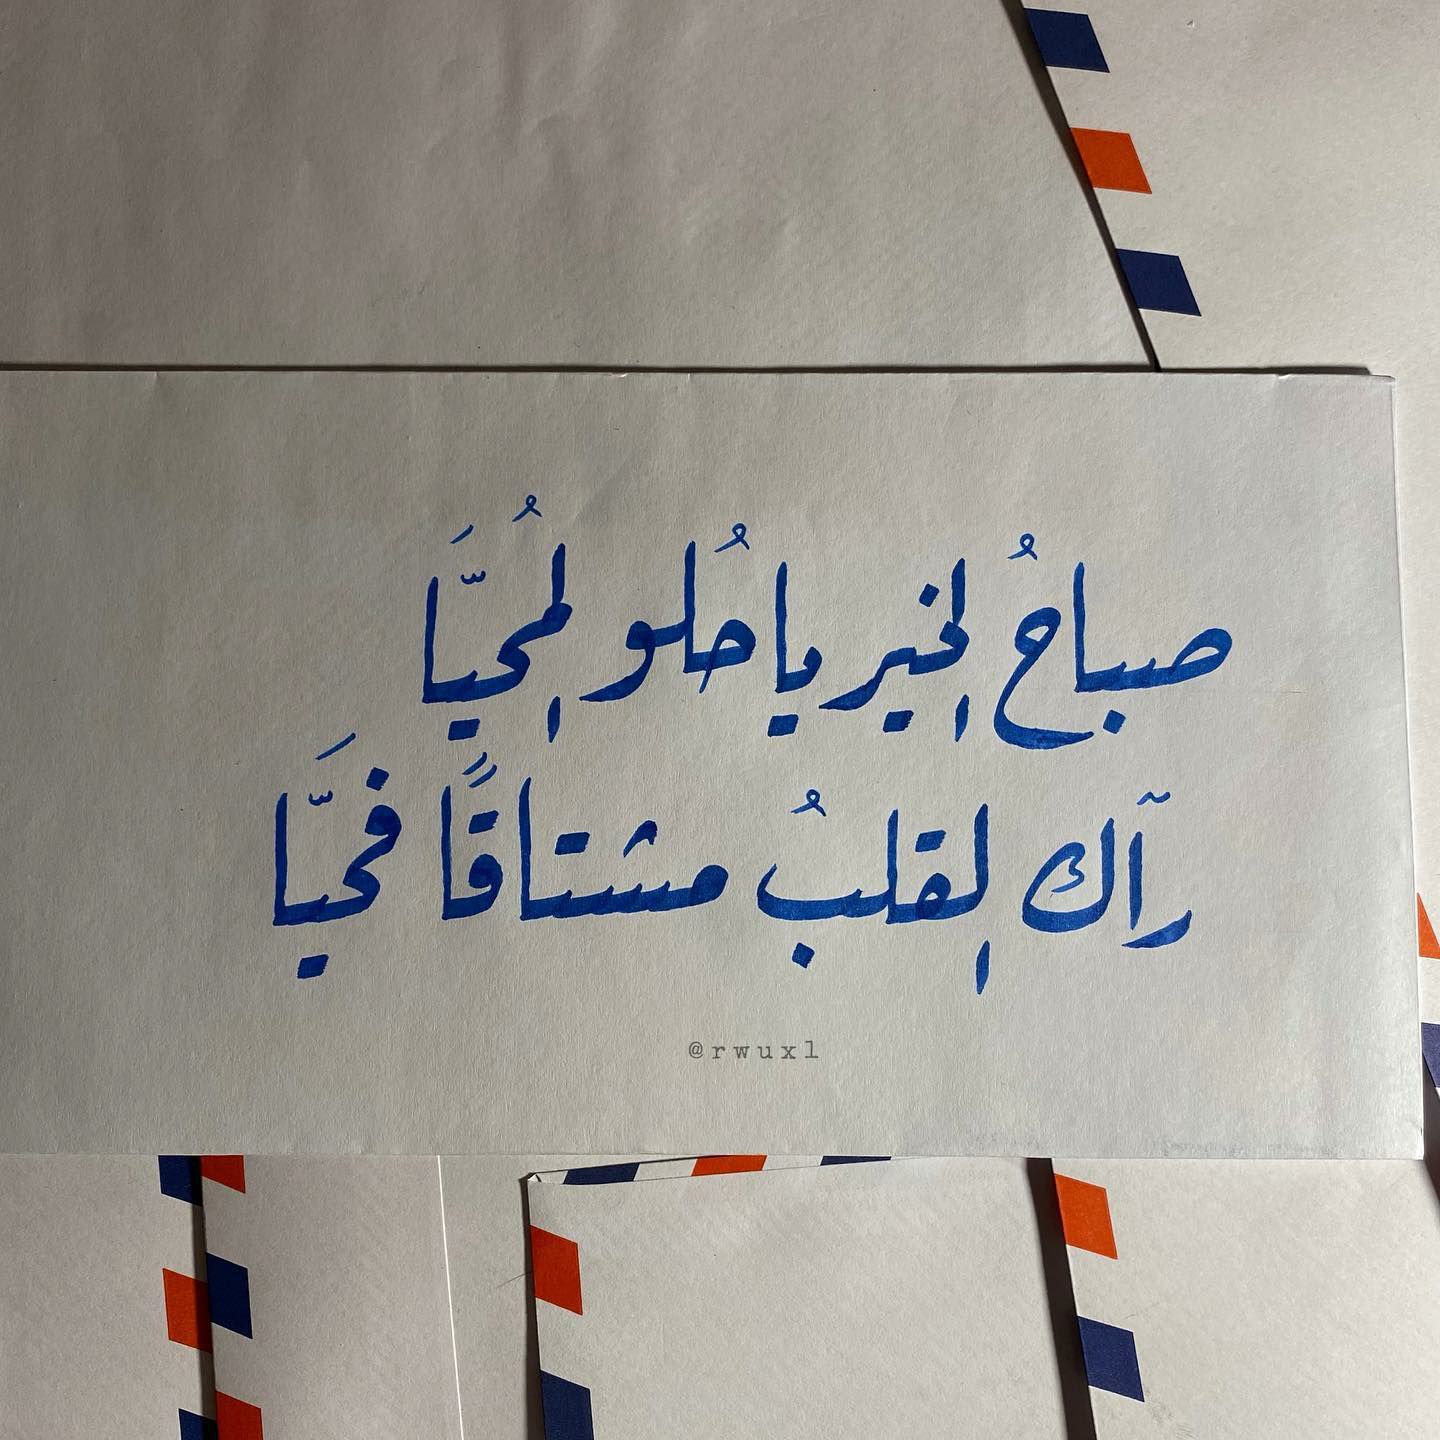 صباحُ الخير يا حُلو المُحيَّا
رآك القلبُ مشتاقًا فحيَّا
@rwuxl